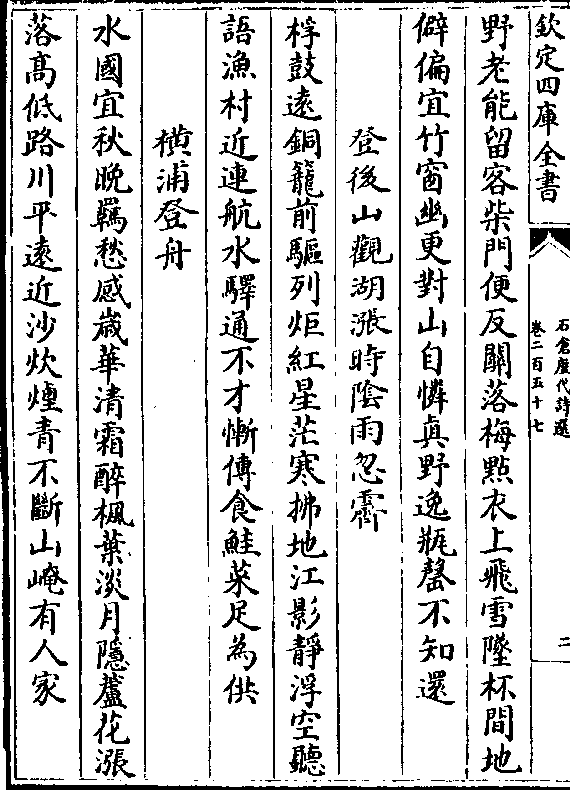 欽定四庫全書
石倉歷代詩選
卷二百五十七
二
野老能留客柴門便反關落梅㸃衣上飛雪墜杯間地
僻偏宜竹窗幽更對山自憐真野逸瓶罄不知還
登後山觀湖漲時陰雨忽霽
桴鼓遠銅籠前驅列炬紅星茫寒拂地江影靜浮空聽
語漁村近連航水驛通不才慚傳食鮭菜足為供
橫浦登舟
水國宜秋晚羈愁感嵗華清霜醉楓葉淡月隱蘆花漲
落髙低路川平逺近沙炊煙青不斷山崦有人家